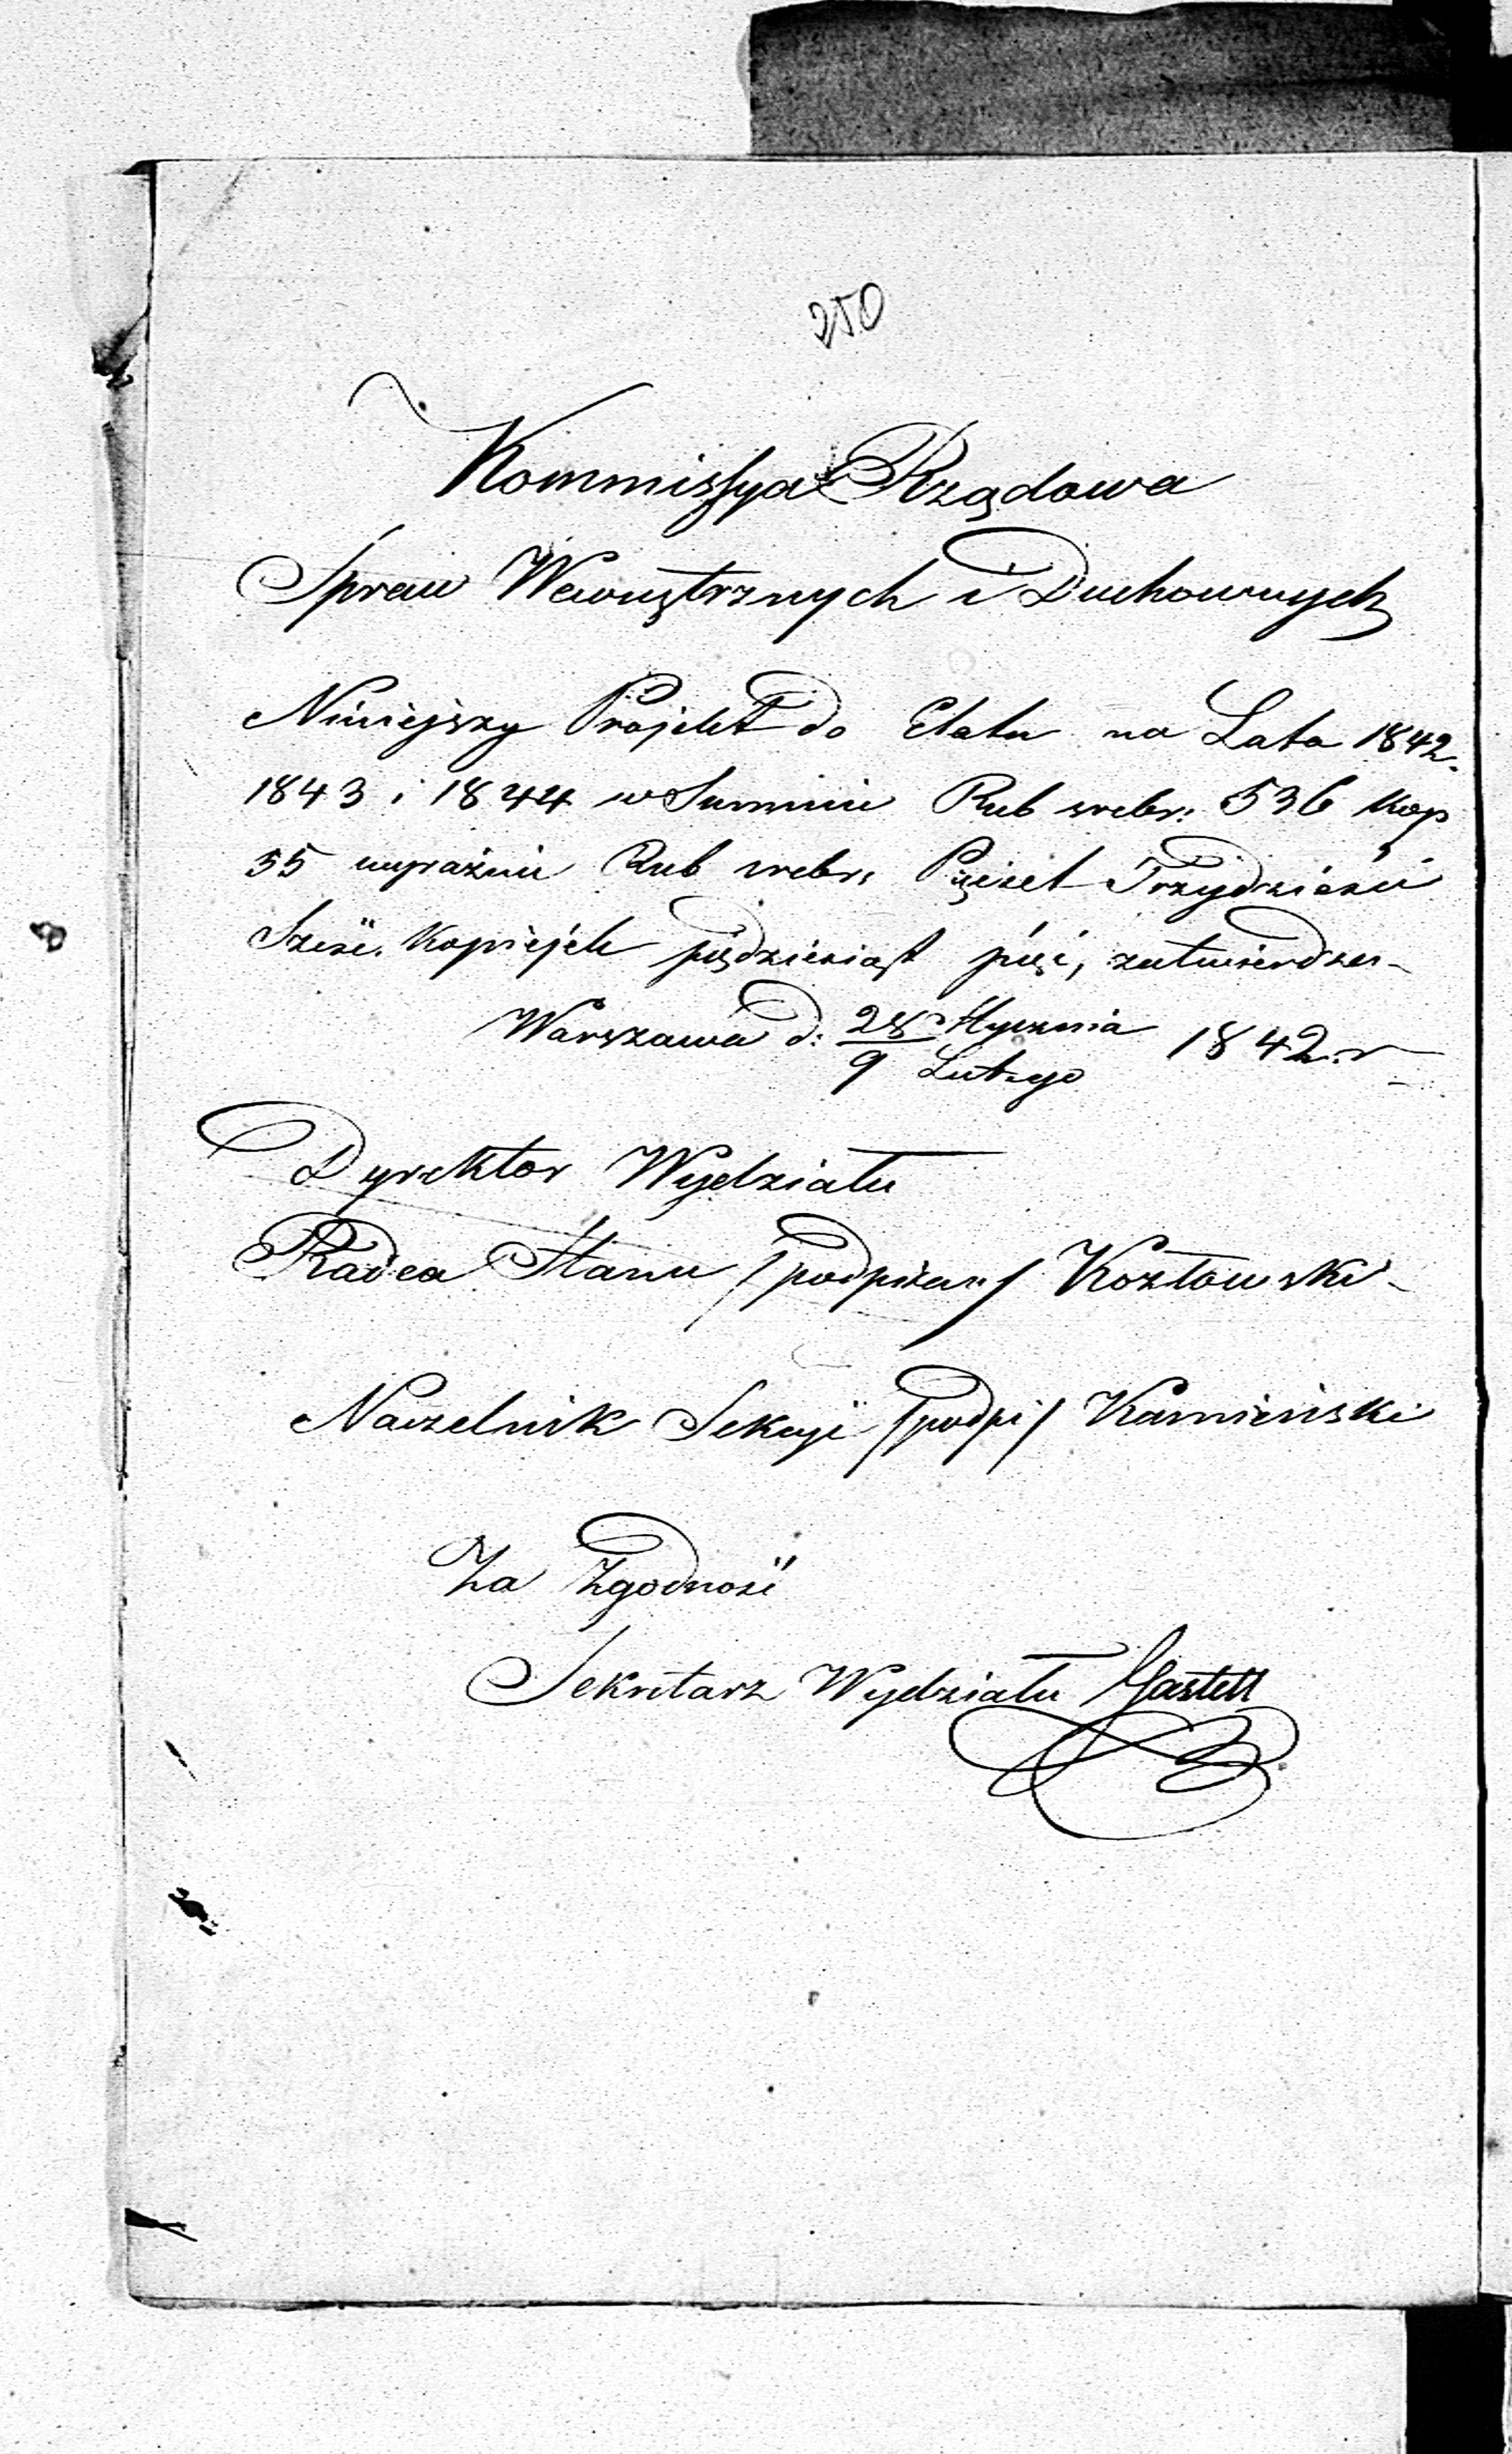 250
Kommissya Rządowa
Spraw Wewnętrznych i Duchownych
Niniejszy Projekt do Etatu na Lata 1842.
1843 i 1844 w Summie Rub srebr: 536 kop
55 wyraźnie Rub srebr: Pięćset Trzydzieści
Sześć. Kopiejek pięćdziesiąt pięć, zatwierdza -
Warszawa d: 28 Stycznia 1842. r
9 Lutego
Dyrektor Wydziału
Radca Stanu /podpisany/ Kozłowski -
Naczelnik Sekcyi /podpi/ Kamieński
Za Zgodność
Sekretarz Wydziału